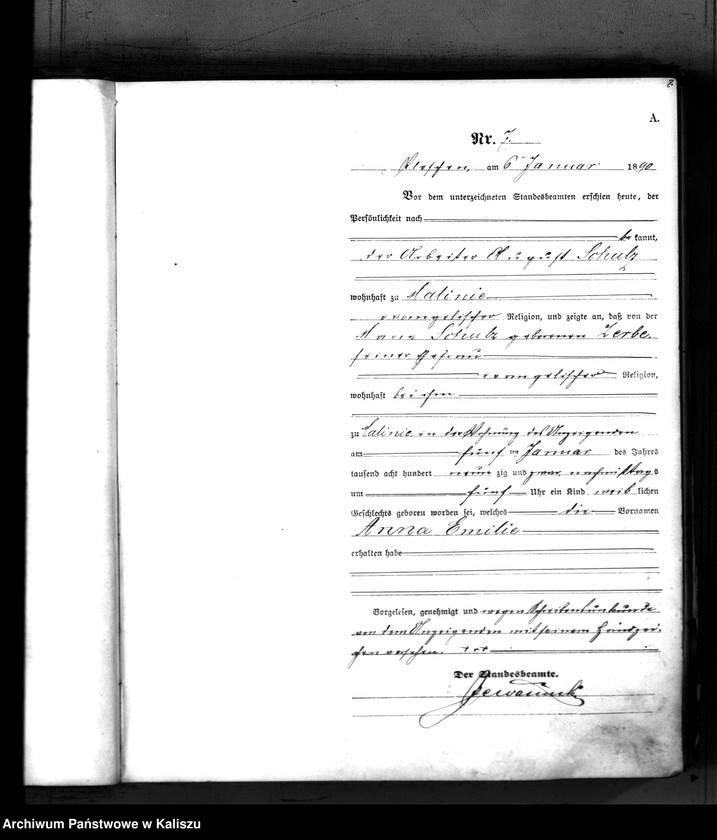 A.
Nr. 7.
Pleschen, am 6ten Januar 1890
Vor dem unterzeichneten Standesbeamten erschien heute, der
Persönlichkeit nach
be kannt,
der Arbeiter August Schulz
wohnhaft zu Malinie
evangelischer Religion, und zeigte an, daß von der
Maria Schulz geborenen Zerbe,
seiner Ehefrau
evangelischer Religion,
wohnhaft bei ihm
zu Malinie in der Wohnung des Anzeigenden
am fünften Januar des Jahres
tausend acht hundert neun zig und zwar nachmittags
um fünf Uhr ein Kind weib lichen
Geschlechts geboren worden sei, welches die Vornamen
Anna Emilie
erhalten habe
Vorgelesen, genehmigt und wegen Schreibensunkunde
von dem Anzeigenden mit seinem Handzei-
chen versehen. +++
Der Standesbeamte.
Archiwum Państwowe w Kaliszu